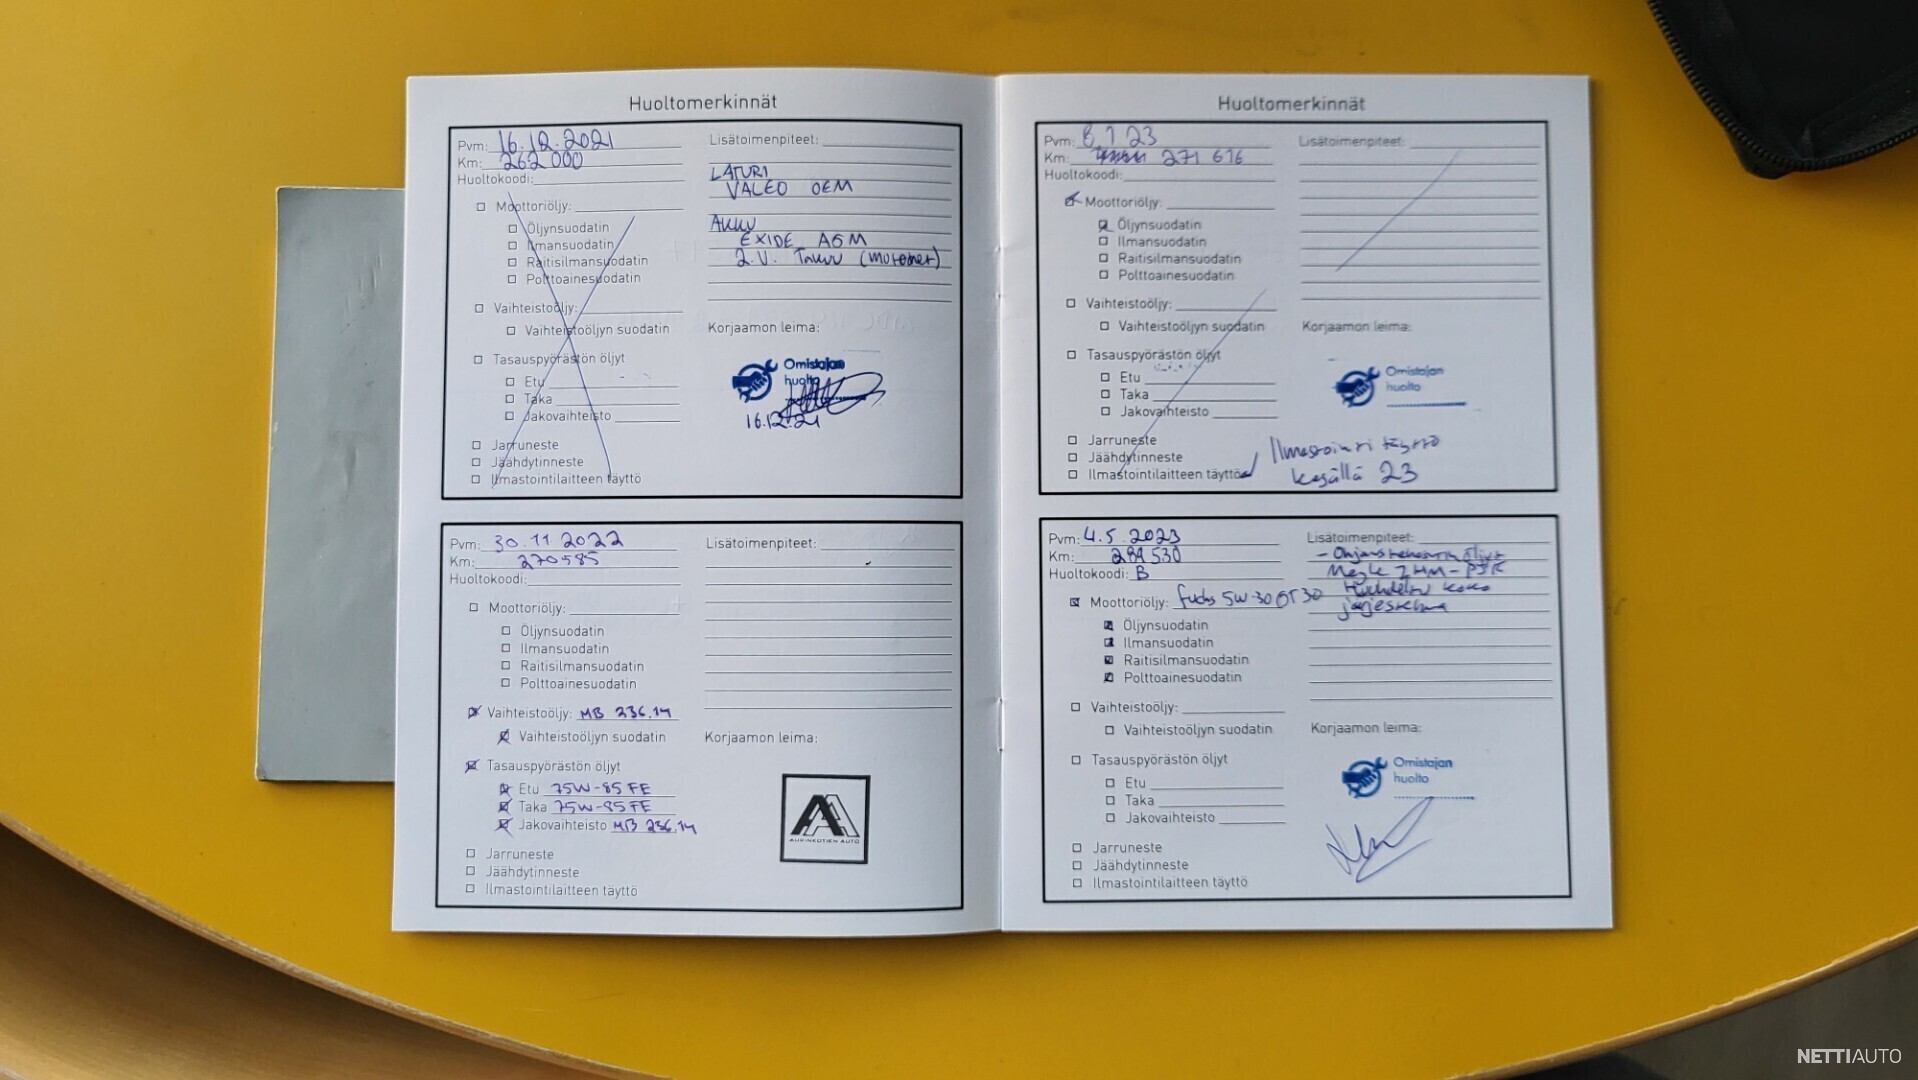 Huoltomerkinnät
Pvm: 16.12.2021
Km: 262 000
Huoltokoodi:
Moottoriöljy:
Öljynsuodatin
Ilmansuodatin
Raitisilmansuodatin
Polttoainesuodatin
Vaihteistoöljy:
Vaihteistoöljyn suodatin
Tasauspyörästön öljyt
Etu
Taka
Jakovaihteisto
Jarruneste
Jäähdytinneste
Ilmastointilaitteen täyttö
Lisätoimenpiteet:
LATURI
VALEO OEM
AKKU
EXIDE AGM
2.V. Takuu
Korjaamon leima:
Omistajan
huolto
16.12.21
Pvm: 30.11 2022
Km: 270585
Huoltokoodi:
Moottoriöljy:
Öljynsuodatin
Ilmansuodatin
Raitisilmansuodatin
Polttoainesuodatin
Vaihteistoöljy: MB 236.14
Vaihteistoöljyn suodatin
Tasauspyörästön öljyt
Etu 75W-85 FE
Taka 75W-85 FE
Jakovaihteisto MB 236.14
Jarruneste
Jäähdytinneste
Ilmastointilaitteen täyttö
Lisätoimenpiteet:
Korjaamon leima:
AURINKOTIEN AUTO
Huoltomerkinnät
Pvm: 8.1 23
Km: 271 616
Huoltokoodi:
Moottoriöljy:
Öljynsuodatin
Ilmansuodatin
Raitisilmansuodatin
Polttoainesuodatin
Vaihteistoöljy:
Vaihteistoöljyn suodatin
Tasauspyörästön öljyt
Etu
Taka
Jakovaihteisto
Jarruneste
Jäähdytinneste
Ilmastointilaitteen täyttö
Lisätoimenpiteet:
Korjaamon leima:
Omistajan
huolto
Ilmastointi täyttö
kesällä 23
Pvm: 4.5.2023
Km: 289 530
Huoltokoodi: B
Moottoriöljy: fuchs 5W-30 GT30
Öljynsuodatin
Ilmansuodatin
Raitisilmansuodatin
Polttoainesuodatin
Vaihteistoöljy:
Vaihteistoöljyn suodatin
Tasauspyörästön öljyt
Etu
Taka
Jakovaihteisto
Jarruneste
Jäähdytinneste
Ilmastointilaitteen täyttö
Lisätoimenpiteet:
- Ohjaustehostin öljyt
Meyle ZHM-
Huuhdeltu koko
järjestelmä
Korjaamon leima:
Omistajan
huolto
NETTIAUTO